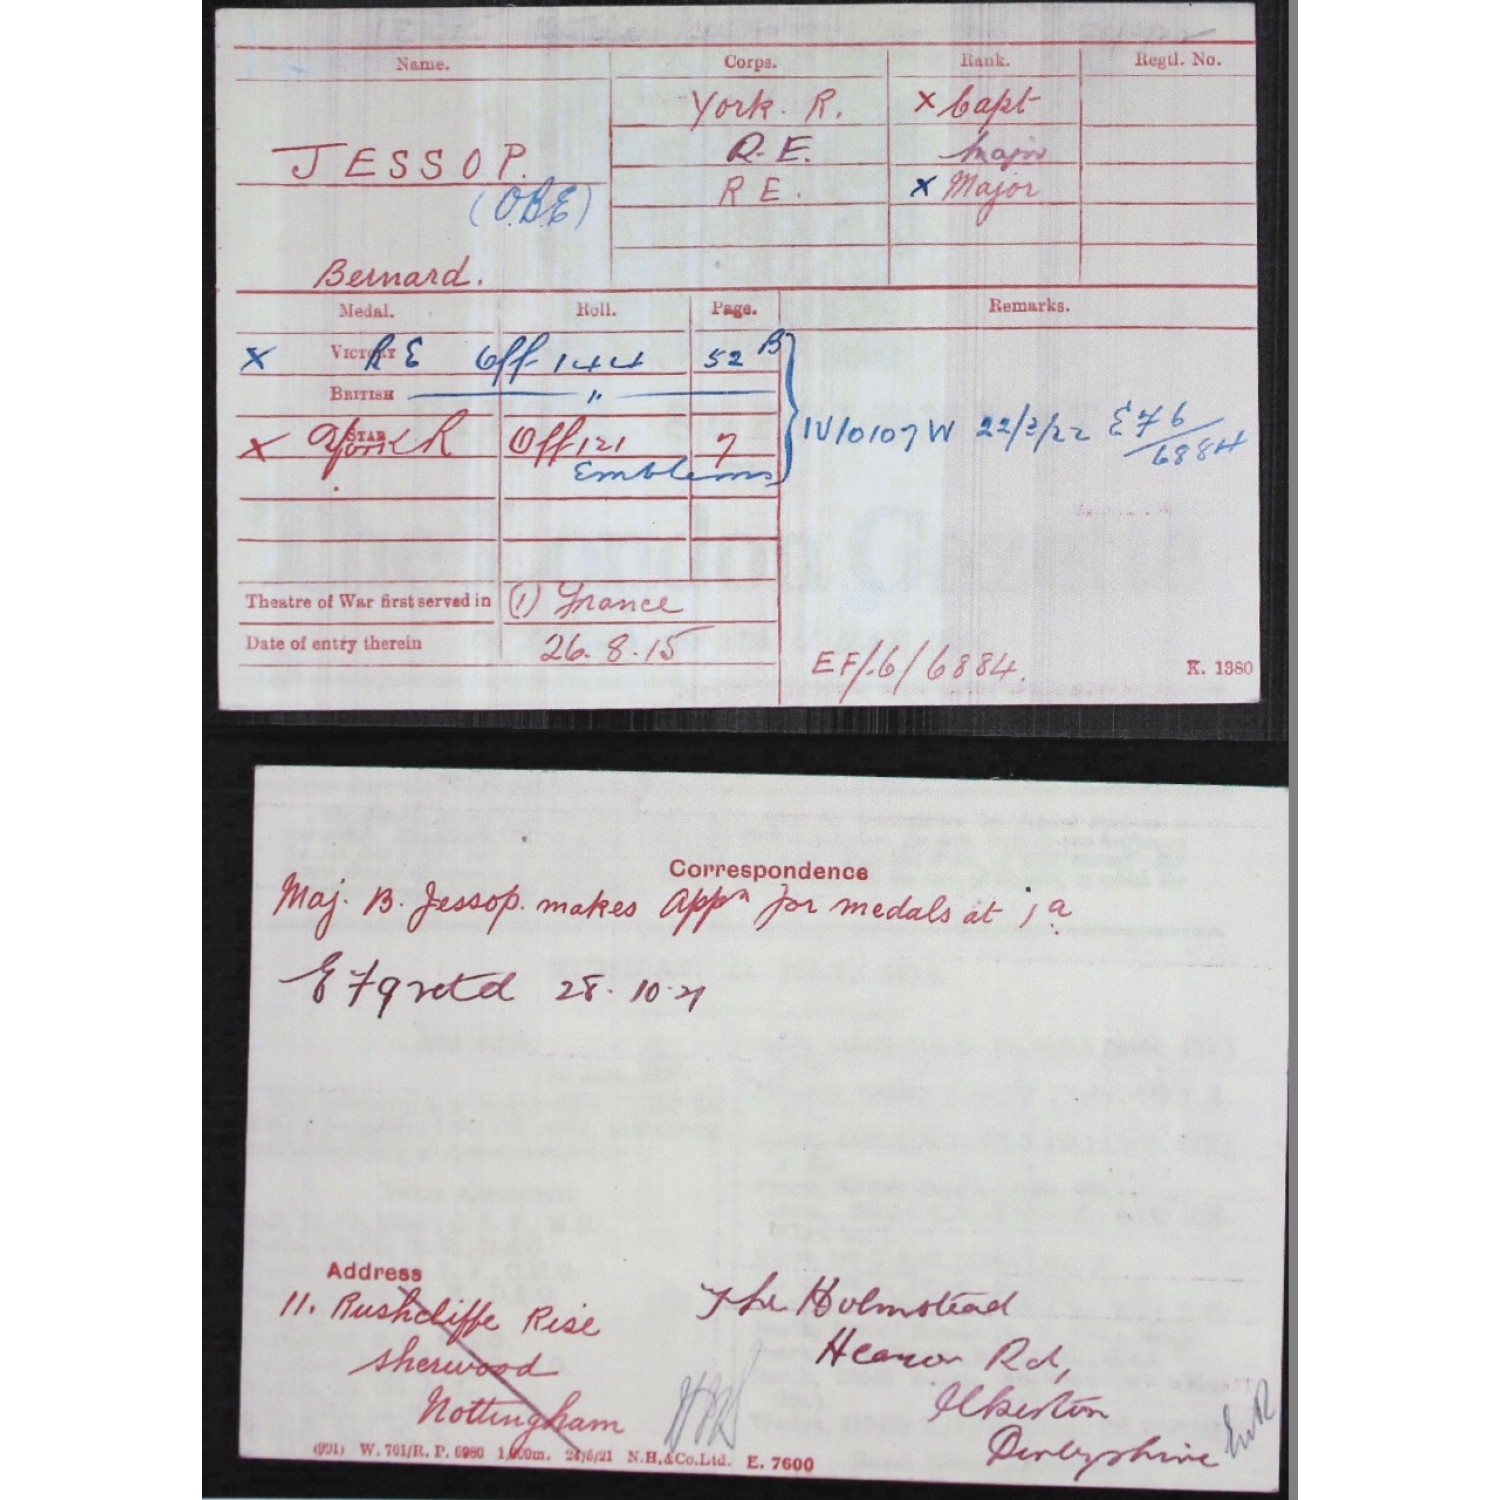 Name. Corps. Rank. Regtl. No.
York. R. × Capt
JESSOP. R.E. Major
(O.B.E) R E. × Major
Bernard.
Medal. Roll. Page. Remarks.
× VICTORY R E Off 144 52 B
BRITISH "
× STAR York R Off 121 7 IV/0107 W 22/3/22 E F 6/6884
Emblems
Theatre of War first served in (1) France
Date of entry therein 26.8.15
EF/.6/6884. K. 1380
Correspondence
Maj. B. Jessop. makes Appn for medals at 1 a
E F 9 retd 28.10.21
Address
11. Rushcliffe Rise The Holmstead
Sherwood Heanor Rd,
Nottingham Ilkeston
Derbyshire
(991) W. 701/R. P. 6980 1,000m. 24/6/21 N.H.&Co.Ltd. E. 7600